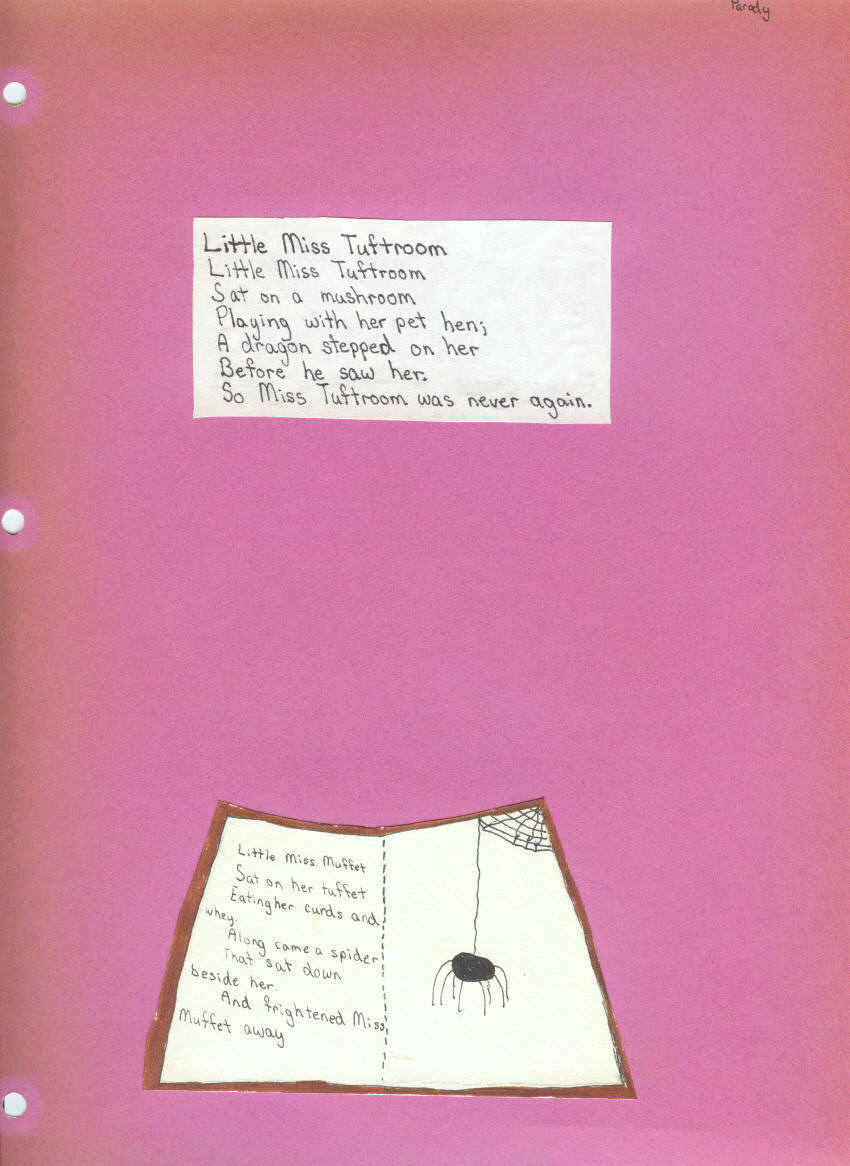 Parody
Little Miss Tuftroom
Little Miss Tuftroom
Sat on a mushroom
Playing with her pet hen;
A dragon stepped on her
Before he saw her.
So Miss Tuftroom was never again.
Little Miss Muffet
Sat on her tuffet
Eating her curds and
whey.
Along came a spider
That sat down
beside her.
And frightened Miss
Muffet away